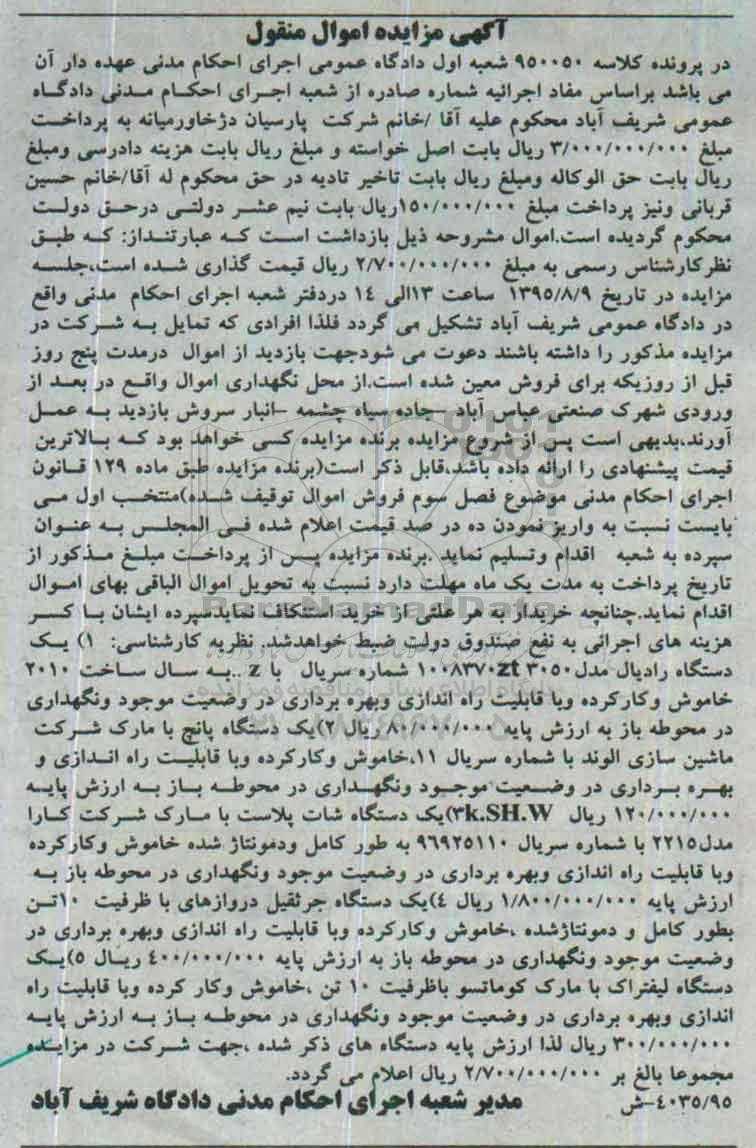 آگهی مزایده اموال منقول
در پرونده کلاسه ۹۵۰۰۵۰ شعبه اول دادگاه عمومی اجرای احکام مدنی عهده دار آن
می باشد براساس مفاد اجرائیه شماره صادره از شعبه اجرای احکام مدنی دادگاه
عمومی شریف آباد محکوم علیه آقا /خانم شرکت پارسیان دژخاورمیانه به پرداخت
مبلغ ۳/۰۰۰/۰۰۰/۰۰۰ ریال بابت اصل خواسته و مبلغ ریال بابت هزینه دادرسی ومبلغ
ریال بابت حق الوکاله ومبلغ ریال بابت تاخیر تادیه در حق محکوم له آقا/خانم حسین
قربانی ونیز پرداخت مبلغ ۱۵۰/۰۰۰/۰۰۰ریال بابت نیم عشر دولتی درحق دولت
محکوم گردیده است.اموال مشروحه ذیل بازداشت است که عبارتنداز: که طبق
نظرکارشناس رسمی به مبلغ ۲/۷۰۰/۰۰۰/۰۰۰ ریال قیمت گذاری شده است،جلسه
مزایده در تاریخ ۱۳۹۵/۸/۹ ساعت ۱۳الی ۱۴ دردفتر شعبه اجرای احکام مدنی واقع
در دادگاه عمومی شریف آباد تشکیل می گردد فلذا افرادی که تمایل به شرکت در
مزایده مذکور را داشته باشند دعوت می شودجهت بازدید از اموال درمدت پنج روز
قبل از روزیکه برای فروش معین شده است.از محل نگهداری اموال واقع در بعد از
ورودی شهرک صنعتی عباس آباد –جاده سیاه چشمه –انبار سروش بازدید به عمل
آورند،بدیهی است پس از شروع مزایده برنده مزایده کسی خواهد بود که بالاترین
قیمت پیشنهادی را ارائه داده باشد،قابل ذکر است(برنده مزایده طبق ماده ۱۲۹ قانون
اجرای احکام مدنی موضوع فصل سوم فروش اموال توقیف شده)منتخب اول می
بایست نسبت به واریز نمودن ده در صد قیمت اعلام شده فی المجلس به عنوان
سپرده به شعبه اقدام وتسلیم نماید .برنده مزایده پس از پرداخت مبلغ مذکور از
تاریخ پرداخت به مدت یک ماه مهلت دارد نسبت به تحویل اموال الباقی بهای اموال
اقدام نماید.چنانچه خریدار به هر علتی از خرید استنکاف نمایدسپرده ایشان با کسر
هزینه های اجرائی به نفع صندوق دولت ضبط خواهدشد. نظریه کارشناسی: ۱) یک
دستگاه رادیال مدل۳۰۵۰ zt۱۰۰۸۳۷۰ شماره سریال با z ..به سال ساخت ۲۰۱۰
خاموش وکارکرده وبا قابلیت راه اندازی وبهره برداری در وضعیت موجود ونگهداری
در محوطه باز به ارزش پایه ۸۰/۰۰۰/۰۰۰ ریال ۲)یک دستگاه پانچ با مارک شرکت
ماشین سازی الوند با شماره سریال ۱۱،خاموش وکارکرده وبا قابلیت راه اندازی و
بهره برداری در وضعیت موجود ونگهداری در محوطه باز به ارزش پایه
۱۲۰/۰۰۰/۰۰۰ ریال k.SH.W۳)یک دستگاه شات پلاست با مارک شرکت کارا
مدل۲۲۱۵ با شماره سریال ۹۶۹۲۵۱۱۰ به طور کامل ودمونتاژ شده خاموش وکارکرده
وبا قابلیت راه اندازی وبهره برداری در وضعیت موجود ونگهداری در محوطه باز به
ارزش پایه ۱/۸۰۰/۰۰۰/۰۰۰ ریال ۴)یک دستگاه جرثقیل دروازهای با ظرفیت ۱۰تن
بطور کامل و دمونتاژشده ،خاموش وکارکرده وبا قابلیت راه اندازی وبهره برداری در
وضعیت موجود ونگهداری در محوطه باز به ارزش پایه ۴۰۰/۰۰۰/۰۰۰ ریال ۵)یک
دستگاه لیفتراک با مارک کوماتسو باظرفیت ۱۰ تن ،خاموش وکار کرده وبا قابلیت راه
اندازی وبهره برداری در وضعیت موجود ونگهداری در محوطه باز به ارزش پایه
۳۰۰/۰۰۰/۰۰۰ ریال لذا ارزش پایه دستگاه های ذکر شده ،جهت شرکت در مزایده
مجموعا بالغ بر ۲/۷۰۰/۰۰۰/۰۰۰ ریال اعلام می گردد.
۴۰۳۵/۹۵–ش مدیر شعبه اجرای احکام مدنی دادگاه شریف آباد